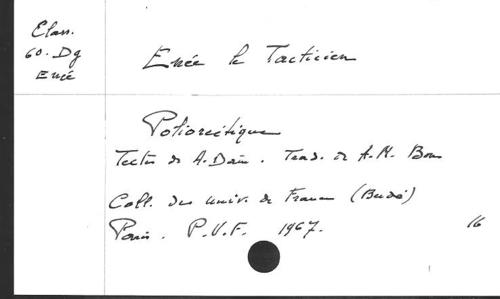 Class.
60. Dg
Enée
Enée le Tacticien
Poliorcétique
Textes de A. Dain. Trad. de A.M. Bon
Coll. des Univ. de France (Budé)
Paris. P.U.F. 1967.
16